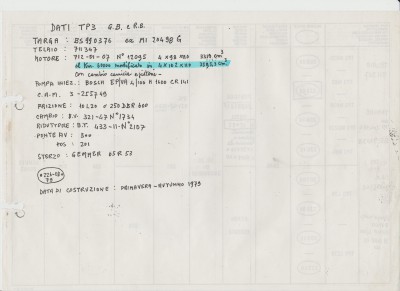 DATI TP3 G.B. e R.B.
TARGA : BS 990376 ex MI 20498 G
TELAIO : 711347
MOTORE : 712-01-07 N° 12095 4 x 98 x110
al Km modificato in 4 x 102 x 110
con cambio camicie e pistoni
POMPA INIEZ. : BOSCH EP/VA 4/100 H 1600 CR 141
C.A.M. 3 - 255749
FRIZIONE : 10 L20 o 250 DBR 600
CAMBIO : B.V. 321-47 N° 1734
RIDUTTORE : B.T. 433-11-N° 2187
PONTE AV : 300
POS : 201
STERZO : GEMMER 05 R 53
DATA DI COSTRUZIONE : PRIMAVERA - AUTUNNO 1973